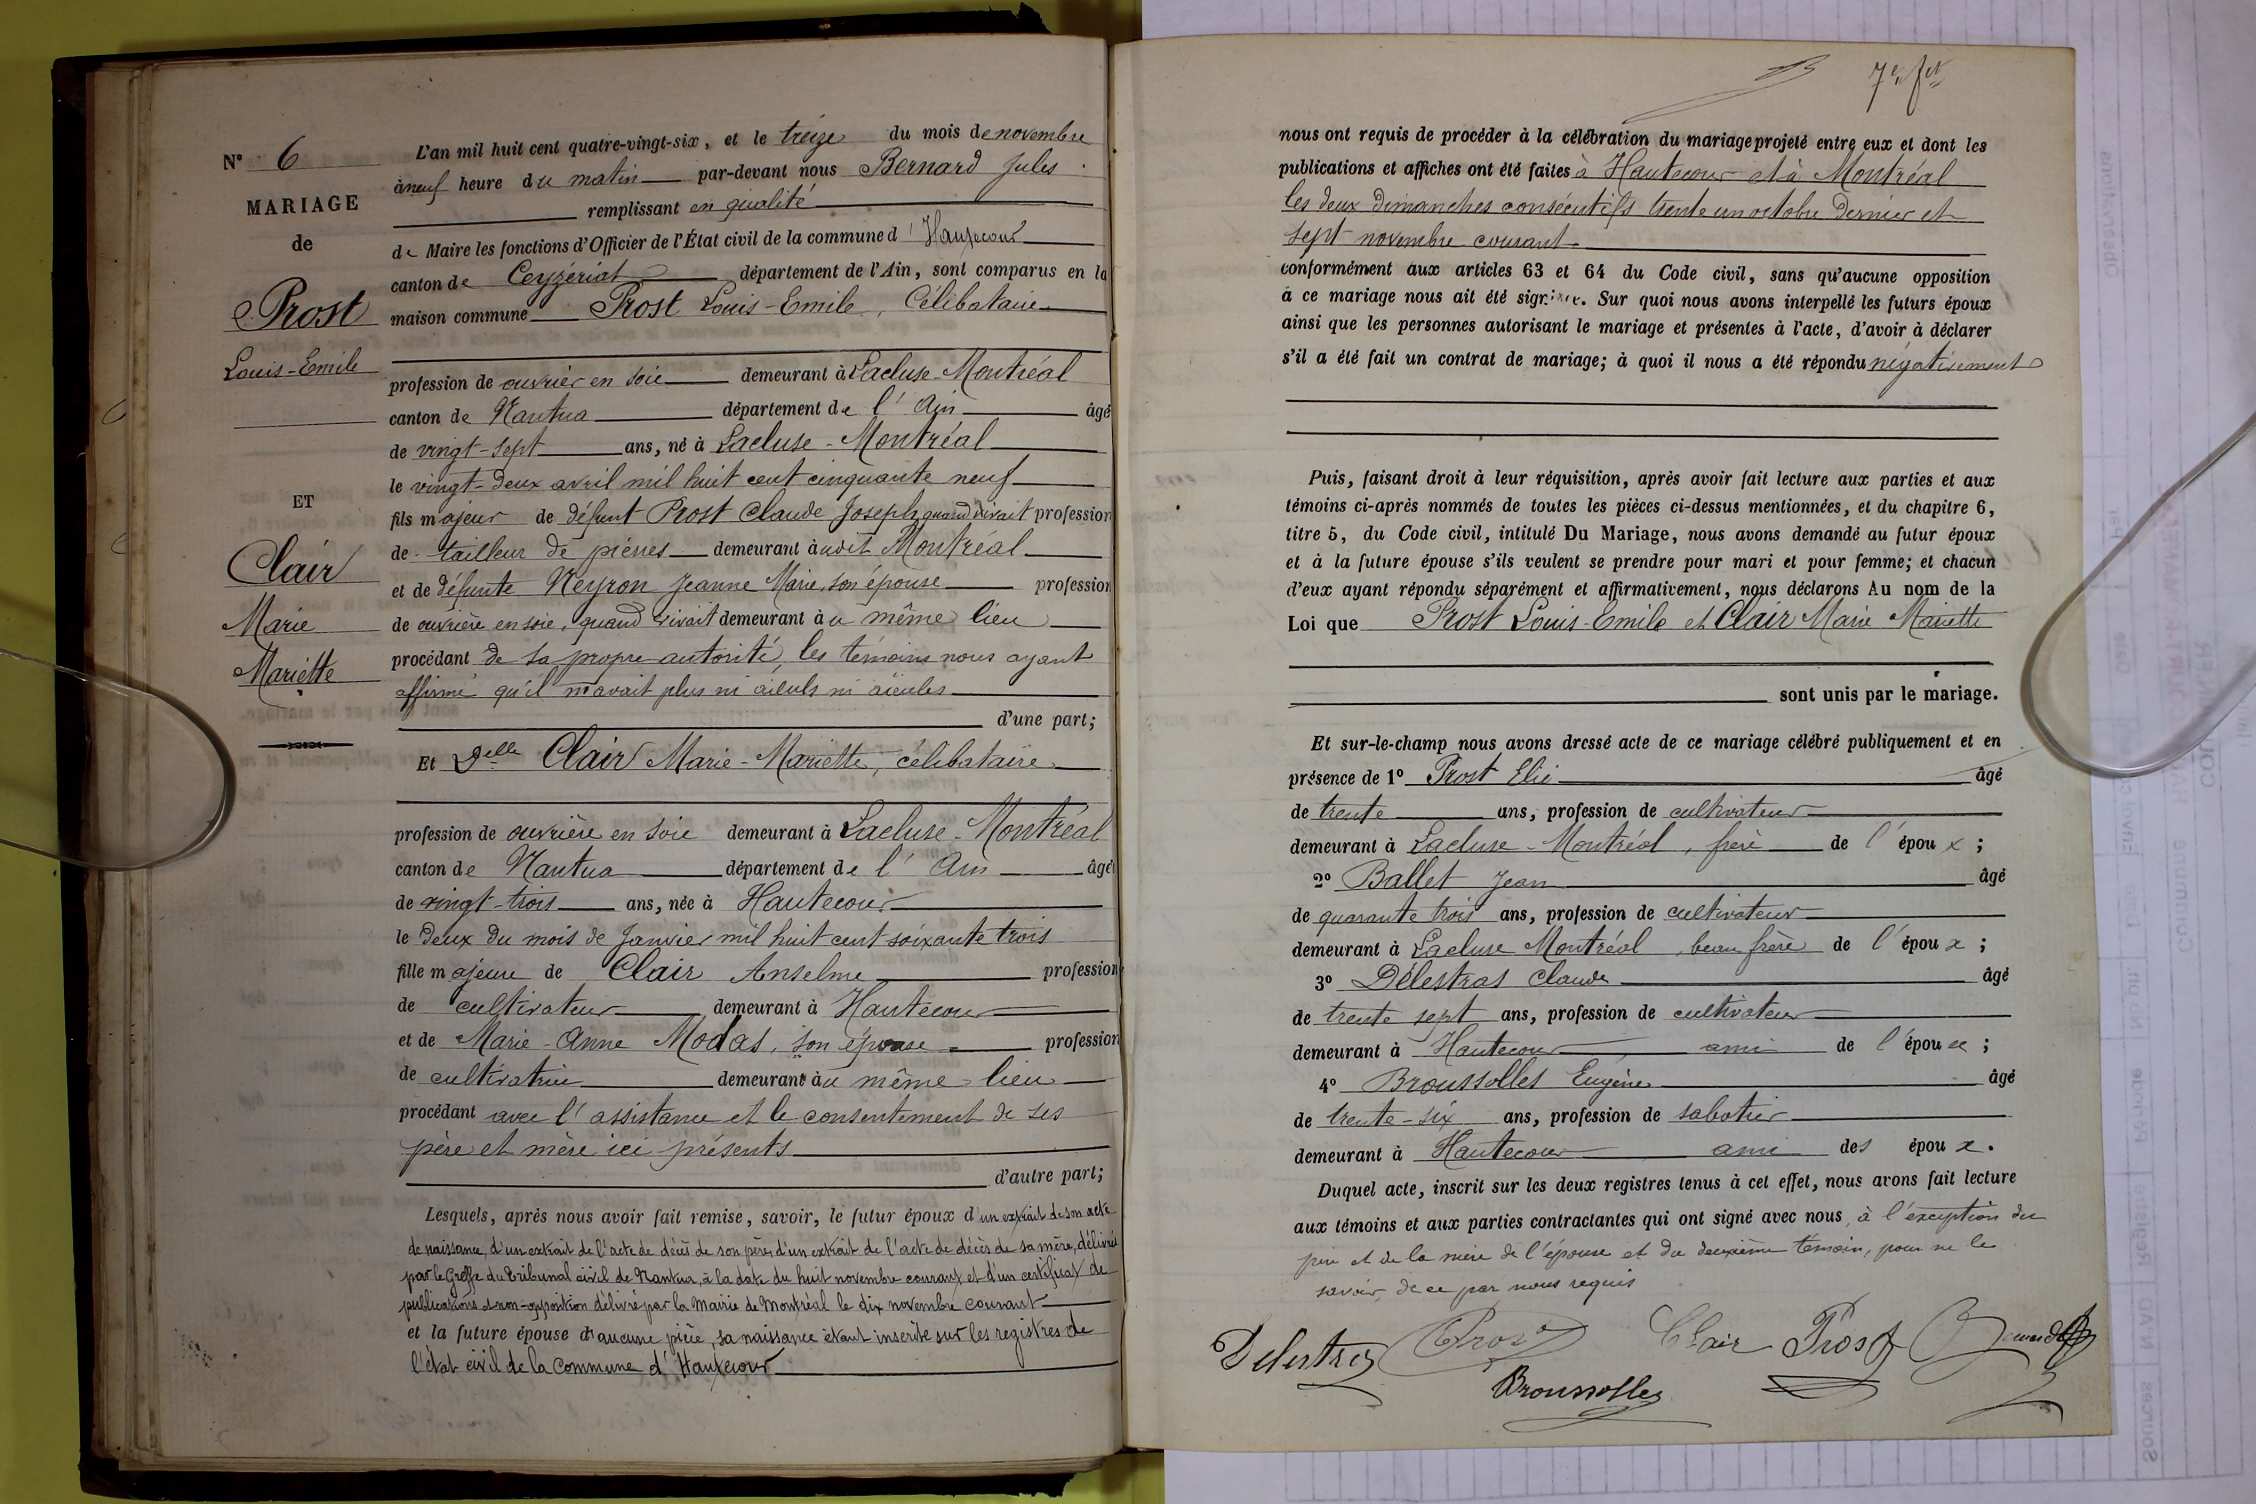 N° 6
MARIAGE
de
Prost
Louis-Emile
ET
Clair
Marie
Mariette
L'an mil huit cent quatre-vingt-six, et le treize du mois de novembre
à neuf heure du matin par-devant nous Bernard Jules
remplissant en qualité
de Maire les fonctions d'Officier de l'État civil de la commune d'Hautecour
canton de Ceyzériat département de l'Ain, sont comparus en la
maison commune Prost Louis-Emile, Célibataire
profession de ouvrier en soie demeurant à Lacluse-Montréal
canton de Nantua département de l'Ain âgé
de vingt-sept ans, né à Lacluse-Montréal
le vingt-deux avril mil huit cent cinquante neuf
fils majeur de défunt Prost Claude Joseph quand vivait profession
de tailleur de pierres demeurant audit Montréal
et de défunte Neyron Jeanne Marie, son épouse profession
de ouvrière en soie, quand vivait demeurant au même lieu
procédant de sa propre autorité, les témoins nous ayant
affirmé qu'il n'avait plus ni aieuls ni aïeules
d'une part;
Et Delle Clair Marie-Mariette, célibataire
profession de ouvrière en soie demeurant à Lacluse-Montréal
canton de Nantua département de l'Ain âgé
de vingt-trois ans, née à Hautecour
le deux du mois de Janvier mil huit cent soixante trois
fille majeure de Clair Anselme profession
de cultivateur demeurant à Hautecour
et de Marie-Anne Modas, son épouse profession
de cultivatrice demeurant au même lieu
procédant avec l'assistance et le consentement de ses
père et mère ici présents
d'autre part;
Lesquels, après nous avoir fait remise, savoir, le futur époux d'un extrait de son acte
de naissance, d'un extrait de l'acte de décès de son père, d'un extrait de l'acte de décès de sa mère, délivrés
par le Greffe du Tribunal civil de Nantua, à la date du huit novembre courant et d'un certificat de
publications et non-opposition délivré par la Mairie de Montréal le dix novembre courant
et la future épouse d'aucune pièce, sa naissance étant inscrite sur les registres de
l'état civil de la commune d'Hautecour
7e fet
nous ont requis de procéder à la célébration du mariage projeté entre eux et dont les
publications et affiches ont été faites à Hautecour et à Montréal
les deux dimanches consécutifs trente un octobre dernier et
sept novembre courant
conformément aux articles 63 et 64 du Code civil, sans qu'aucune opposition
à ce mariage nous ait été signifiée. Sur quoi nous avons interpellé les futurs époux
ainsi que les personnes autorisant le mariage et présentes à l'acte, d'avoir à déclarer
s'il a été fait un contrat de mariage; à quoi il nous a été répondu négativement
Puis, faisant droit à leur réquisition, après avoir fait lecture aux parties et aux
témoins ci-après nommés de toutes les pièces ci-dessus mentionnées, et du chapitre 6,
titre 5, du Code civil, intitulé Du Mariage, nous avons demandé au futur époux
et à la future épouse s'ils veulent se prendre pour mari et pour femme; et chacun
d'eux ayant répondu séparément et affirmativement, nous déclarons Au nom de la
Loi que Prost Louis-Emile et Clair Marie Mariette
sont unis par le mariage.
Et sur-le-champ nous avons dressé acte de ce mariage célébré publiquement et en
présence de 1° Prost Elie âgé
de trente ans, profession de cultivateur
demeurant à Lacluse-Montréal, frère de l'époux;
2° Ballet Jean âgé
de quarante trois ans, profession de cultivateur
demeurant à Lacluse Montréal, beau frère de l'époux;
3° Délestras Claude âgé
de trente sept ans, profession de cultivateur
demeurant à Hautecour, ami de l'époux;
4° Broussolles Eugène âgé
de trente-six ans, profession de sabotier
demeurant à Hautecour ami des époux.
Duquel acte, inscrit sur les deux registres tenus à cet effet, nous avons fait lecture
aux témoins et aux parties contractantes qui ont signé avec nous, à l'exception du
père et de la mère de l'épouse et du deuxième témoin, pour ne le
savoir, de ce par nous requis
Delestras Prost Clair Prost Bernard
Broussolles